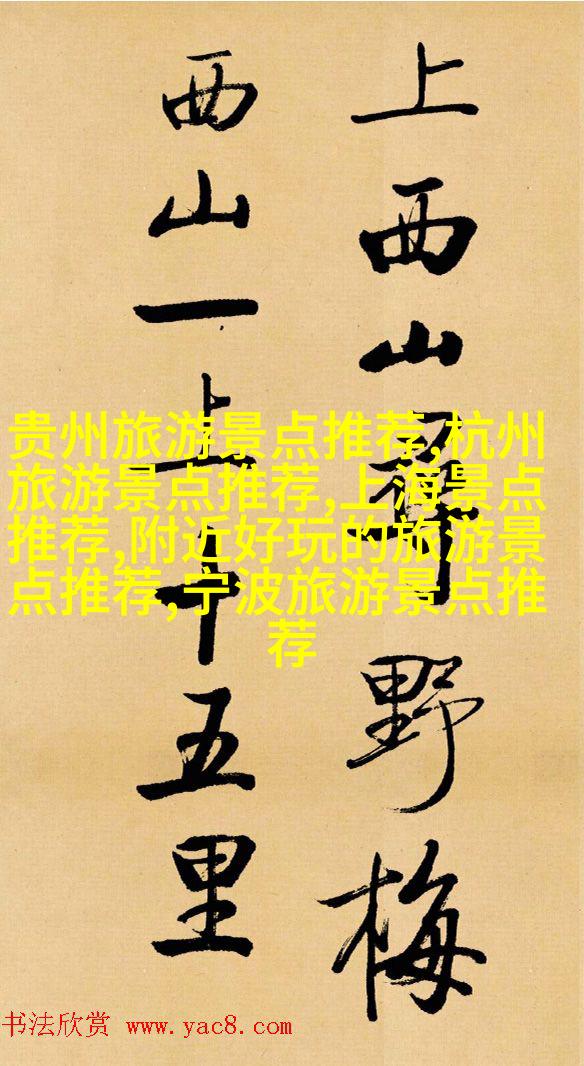 上西山尋野梅
西山一上十五里
贵州旅游景点推荐,杭州
旅游景点推荐,上海景点
推荐,附近好玩的旅游景
点推荐,宁波旅游景点推
荐
书法欣赏 www.yac8.com